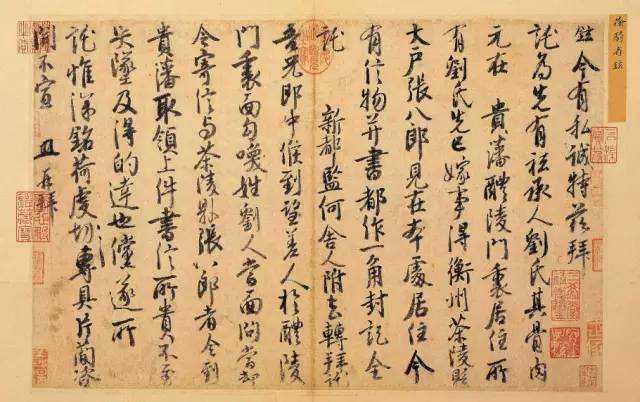 徐騎省鉉
鉉 今有私誠特茲拜
託為先有祗承人劉氏其骨肉
元在 貴藩醴陵門裏居住所
有劉氏先已嫁事得衡州茶陵縣
大户張八郎見在本處居住今
有信物并書都作一角封記全
託 新都監何舍人附去轉拜託
吾兄郎中候到望差人於醴陵
門裏面勾喚姓劉人當面問當却
令寄信与茶陵縣張八郎者令到
貴藩取領上件書信所貴不至
失墜及得的達也儻遂所
託惟深銘荷虔切專具片簡咨
聞不宣 再拜